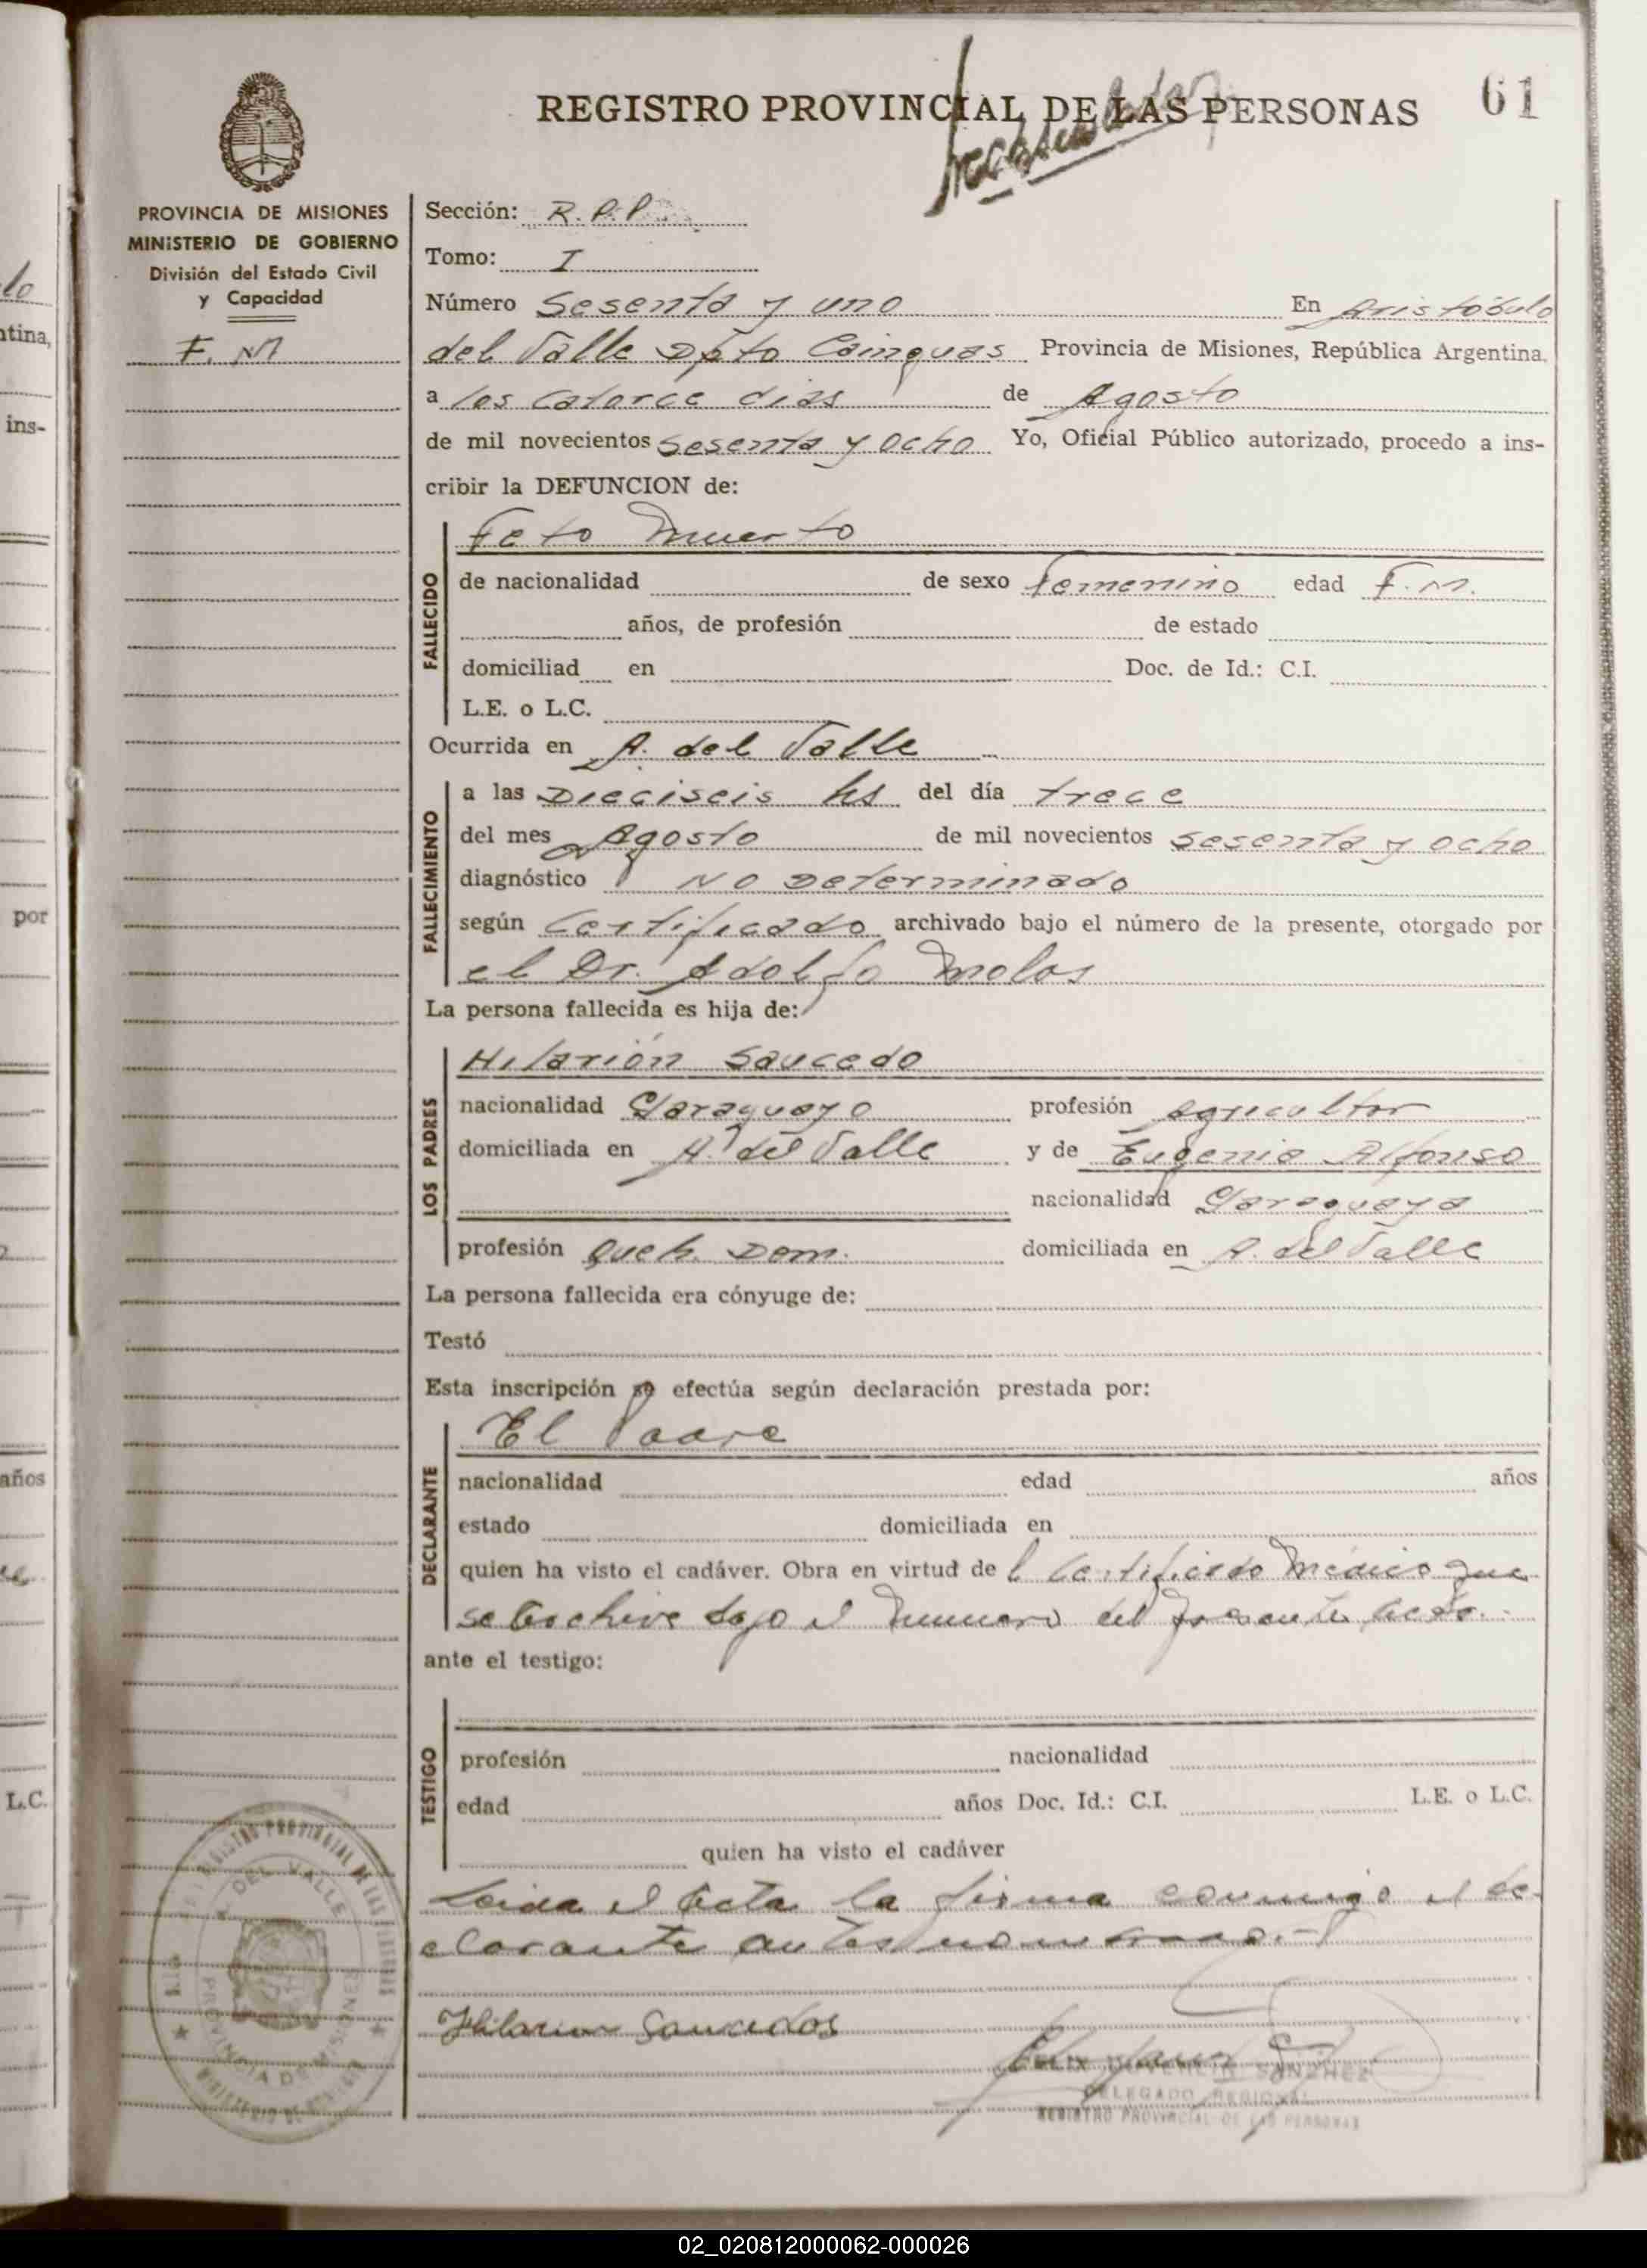 REGISTRO PROVINCIAL DE LAS PERSONAS 61
PROVINCIA DE MISIONES
MINISTERIO DE GOBIERNO
División del Estado Civil
y Capacidad
F. M
Sección: R. P. P.
Tomo: I
Número Sesenta y uno En Aristóbulo
del Valle Dpto Cainguas Provincia de Misiones, República Argentina,
a los catorce dias de Agosto
de mil novecientos sesenta y ocho Yo, Oficial Público autorizado, procedo a ins-
cribir la DEFUNCION de:
FALLECIDO
Feto Muerto
de nacionalidad de sexo femenino edad F. M.
años, de profesión de estado
domiciliad en Doc. de Id.: C.I.
L.E. o L.C.
Ocurrida en A. del Valle
FALLECIMIENTO
a las Dieciseis hs del día trece
del mes Agosto de mil novecientos sesenta y ocho
diagnóstico No Determinado
según certificado archivado bajo el número de la presente, otorgado por
el Dr. Adolfo Molas
La persona fallecida es hija de:
LOS PADRES
Hilarión Saucedo
nacionalidad Paraguayo profesión agricultor
domiciliada en A. del Valle y de Eugenia Alfonso
nacionalidad Paraguaya
profesión Queh. Dom. domiciliada en A. del Valle
La persona fallecida era cónyuge de:
Testó
Esta inscripción se efectúa según declaración prestada por:
DECLARANTE
El Padre
nacionalidad edad años
estado domiciliada en
quien ha visto el cadáver. Obra en virtud de l Certificado Médico que
se archiva bajo el numero del presente acto.
ante el testigo:
TESTIGO
profesión nacionalidad
edad años Doc. Id.: C.I. L.E. o L.C.
quien ha visto el cadáver
Leida el acta la firma conmigo el de-
clarante antes nombrado.-
Hilarion Saucedos
FELIX SANCHEZ
DELEGADO REGIONAL
REGISTRO PROVINCIAL DE LAS PERSONAS
REGISTRO PROVINCIAL DE LAS PERSONAS
DEL VALLE
PROVINCIA DE MISIONES
MINISTERIO DE GOBIERNO
lo
ntina,
ins-
por
años
L.C.
02_020812000062-000026